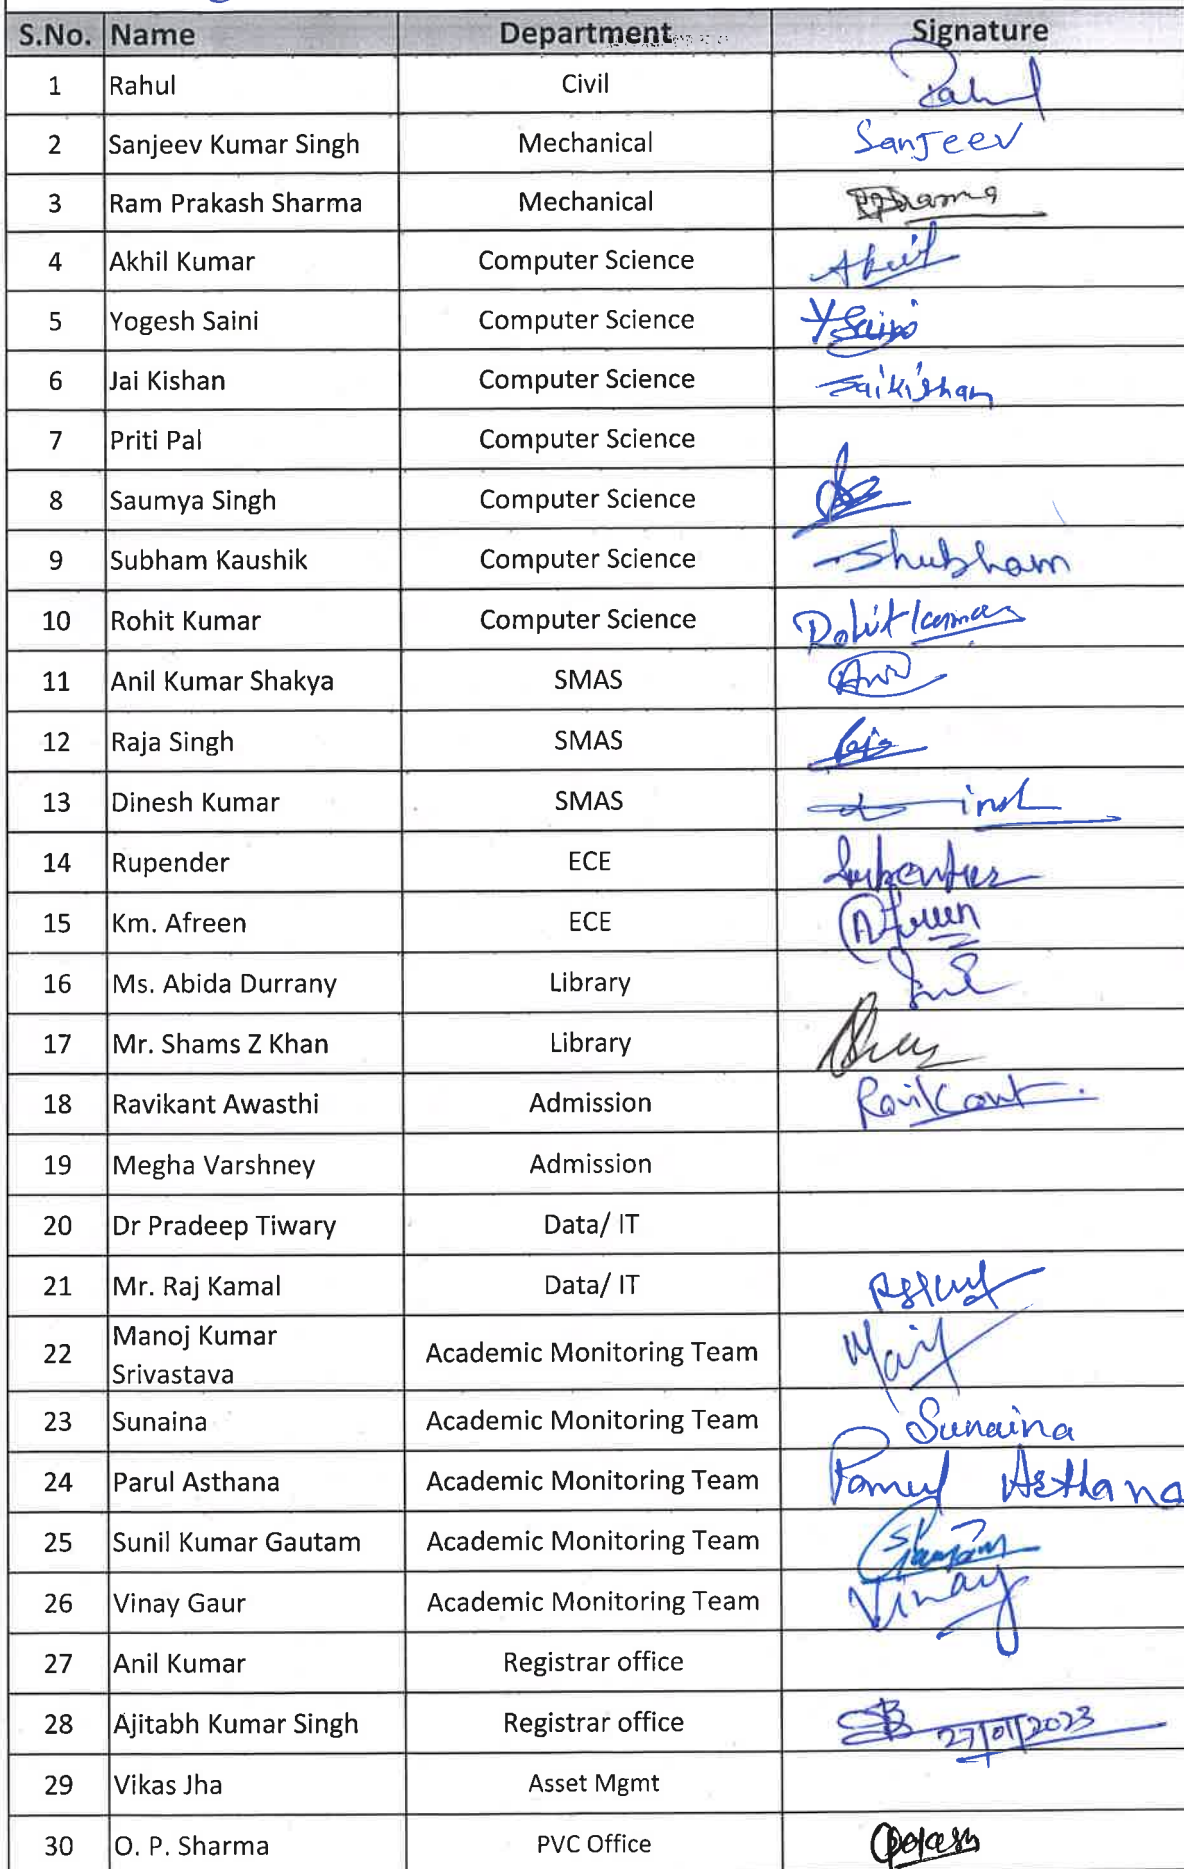 S.No. Name Department Signature
1 Rahul Civil Rahul
2 Sanjeev Kumar Singh Mechanical Sanjeev
3 Ram Prakash Sharma Mechanical
4 Akhil Kumar Computer Science Akhil
5 Yogesh Saini Computer Science YSaini
6 Jai Kishan Computer Science Jaikishan
7 Priti Pal Computer Science
8 Saumya Singh Computer Science
9 Subham Kaushik Computer Science Shubham
10 Rohit Kumar Computer Science Rohit Kumar
11 Anil Kumar Shakya SMAS
12 Raja Singh SMAS
13 Dinesh Kumar SMAS
14 Rupender ECE
15 Km. Afreen ECE Afreen
16 Ms. Abida Durrany Library
17 Mr. Shams Z Khan Library
18 Ravikant Awasthi Admission Ravikant
19 Megha Varshney Admission
20 Dr Pradeep Tiwary Data/ IT
21 Mr. Raj Kamal Data/ IT
22 Manoj Kumar
Srivastava Academic Monitoring Team
23 Sunaina Academic Monitoring Team Sunaina
24 Parul Asthana Academic Monitoring Team Parul Asthana
25 Sunil Kumar Gautam Academic Monitoring Team
26 Vinay Gaur Academic Monitoring Team Vinay
27 Anil Kumar Registrar office
28 Ajitabh Kumar Singh Registrar office 27/01/2023
29 Vikas Jha Asset Mgmt
30 O. P. Sharma PVC Office